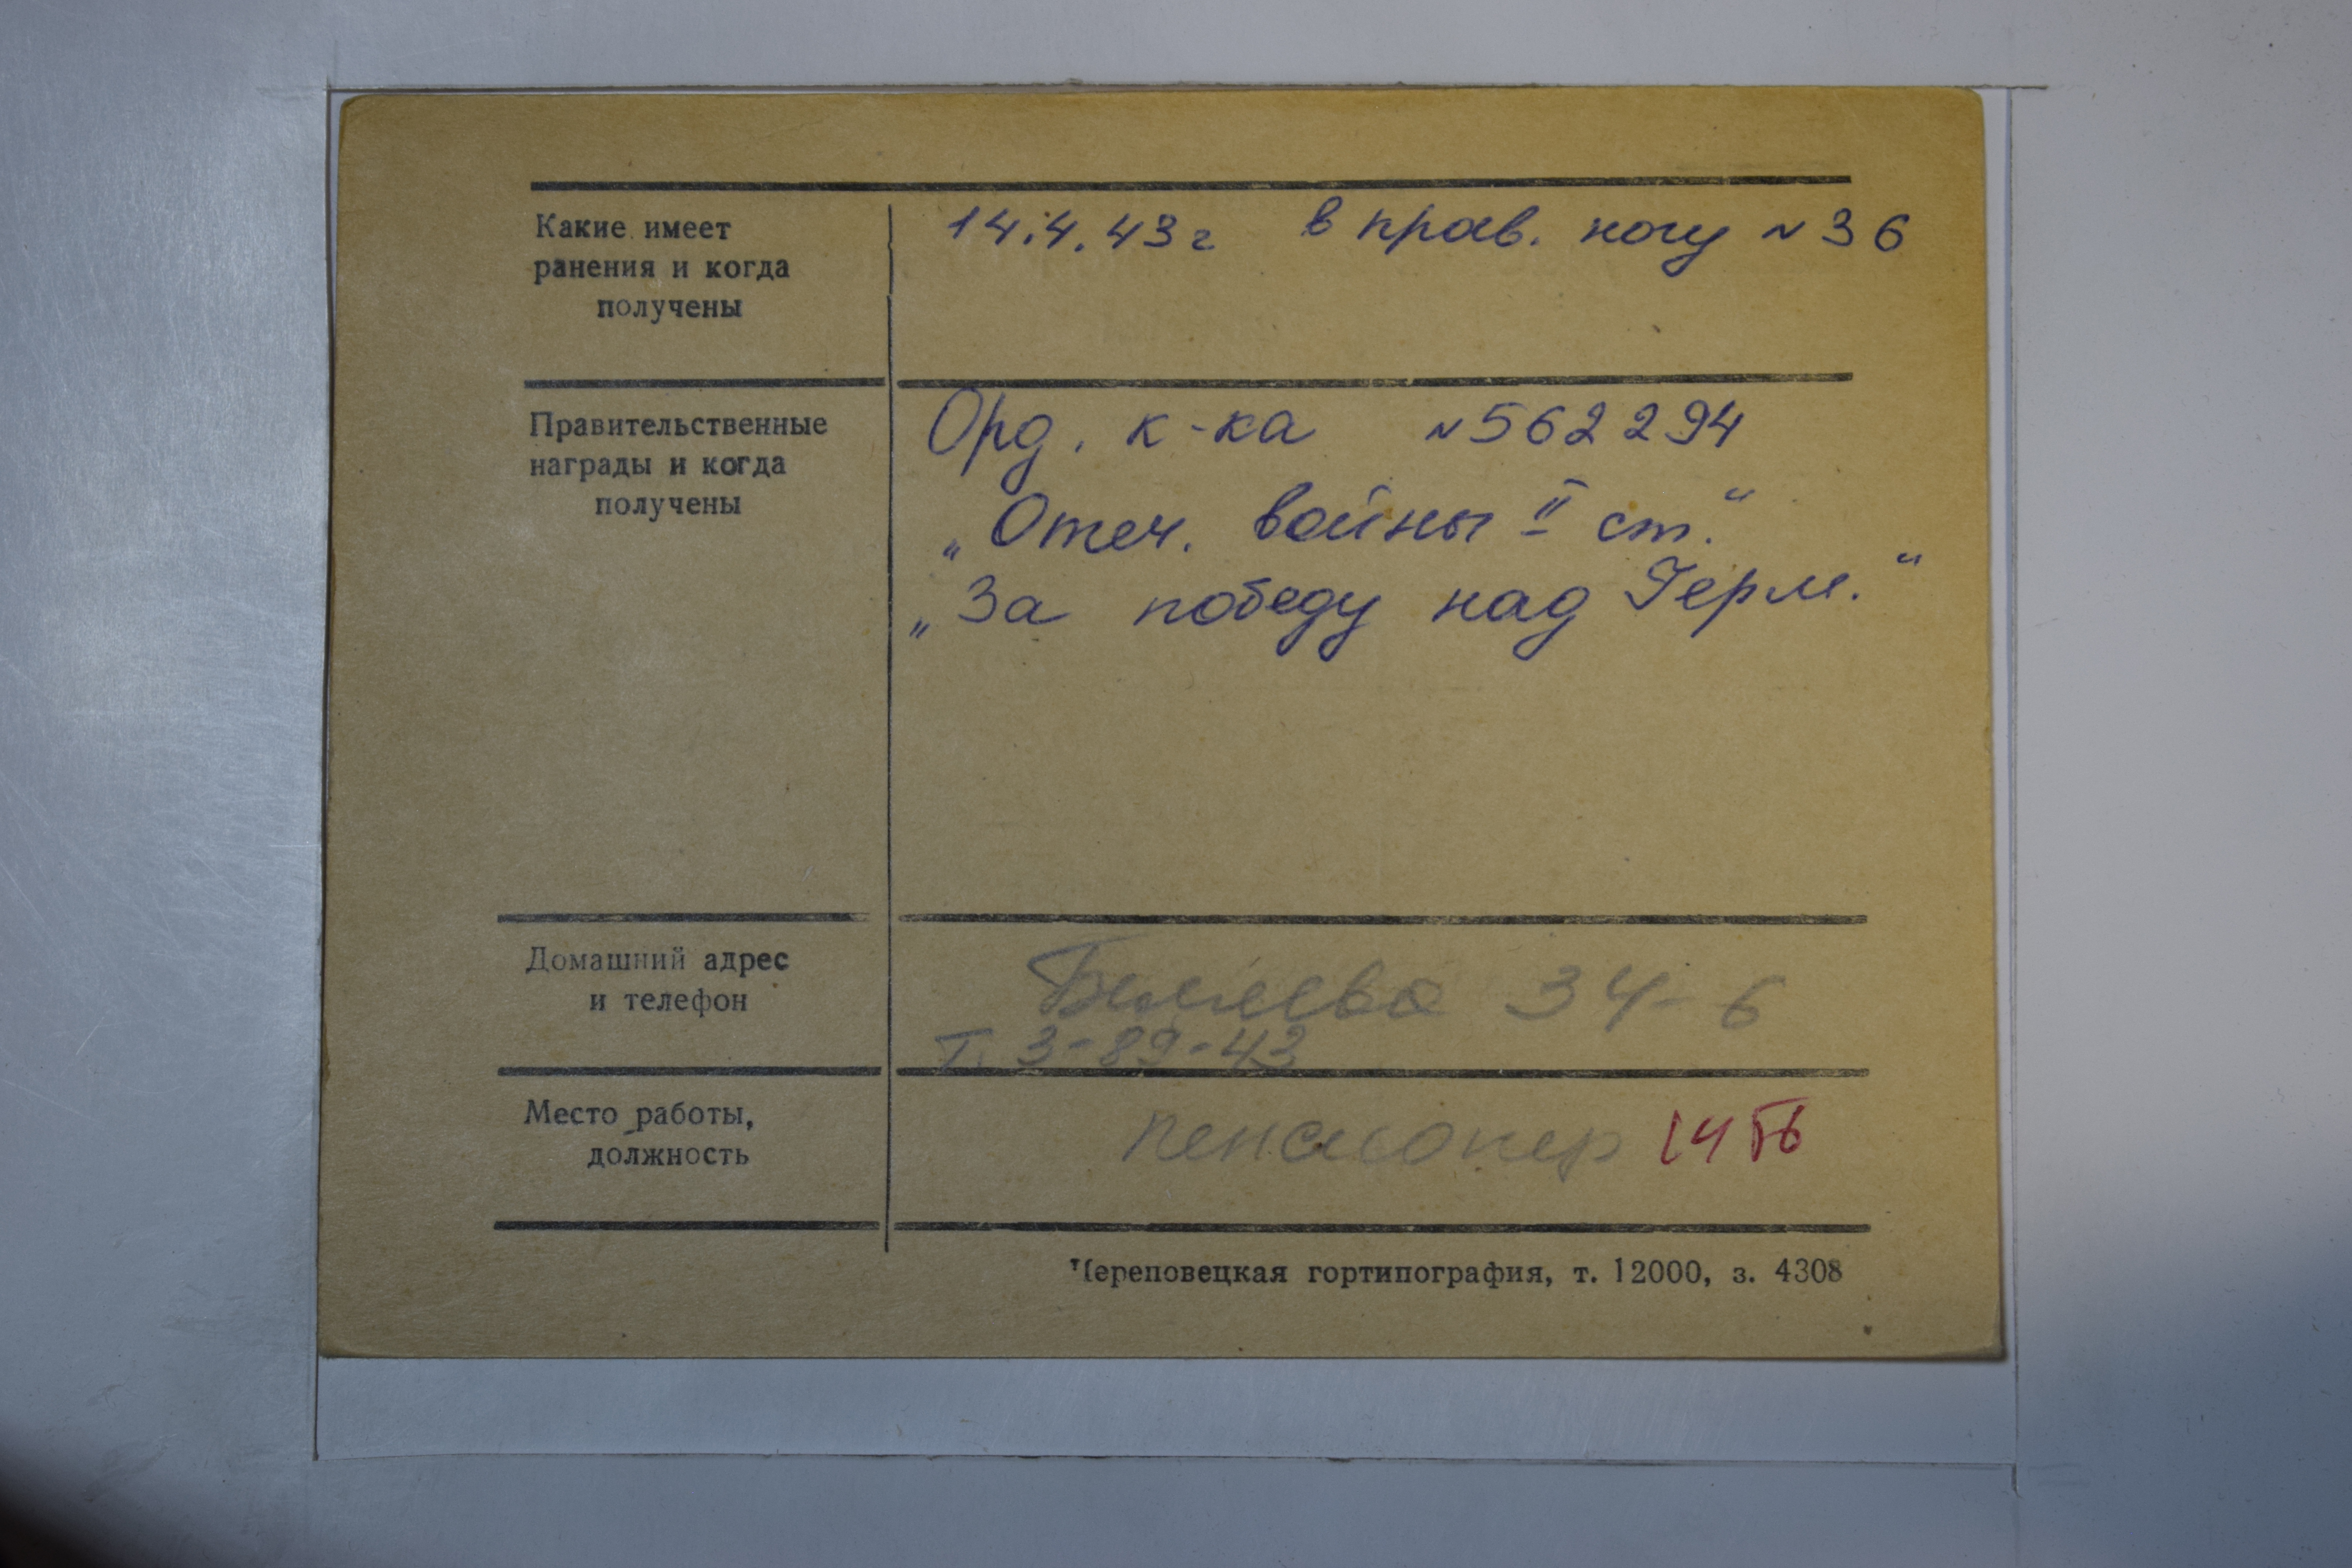 Какие имеет
ранения и когда
получены
14.4.43г в прав. ногу №36
Правительственные
награды и когда
получены
Орд. к-ка №562294
„Отеч. войны II ст.“
„За победу над Герм.“
Домашний адрес
и телефон
Беляева 34-6
т. 3-89-43
Место работы,
должность
пенсионер
Череповецкая гортипография, т. 12000, з. 4308